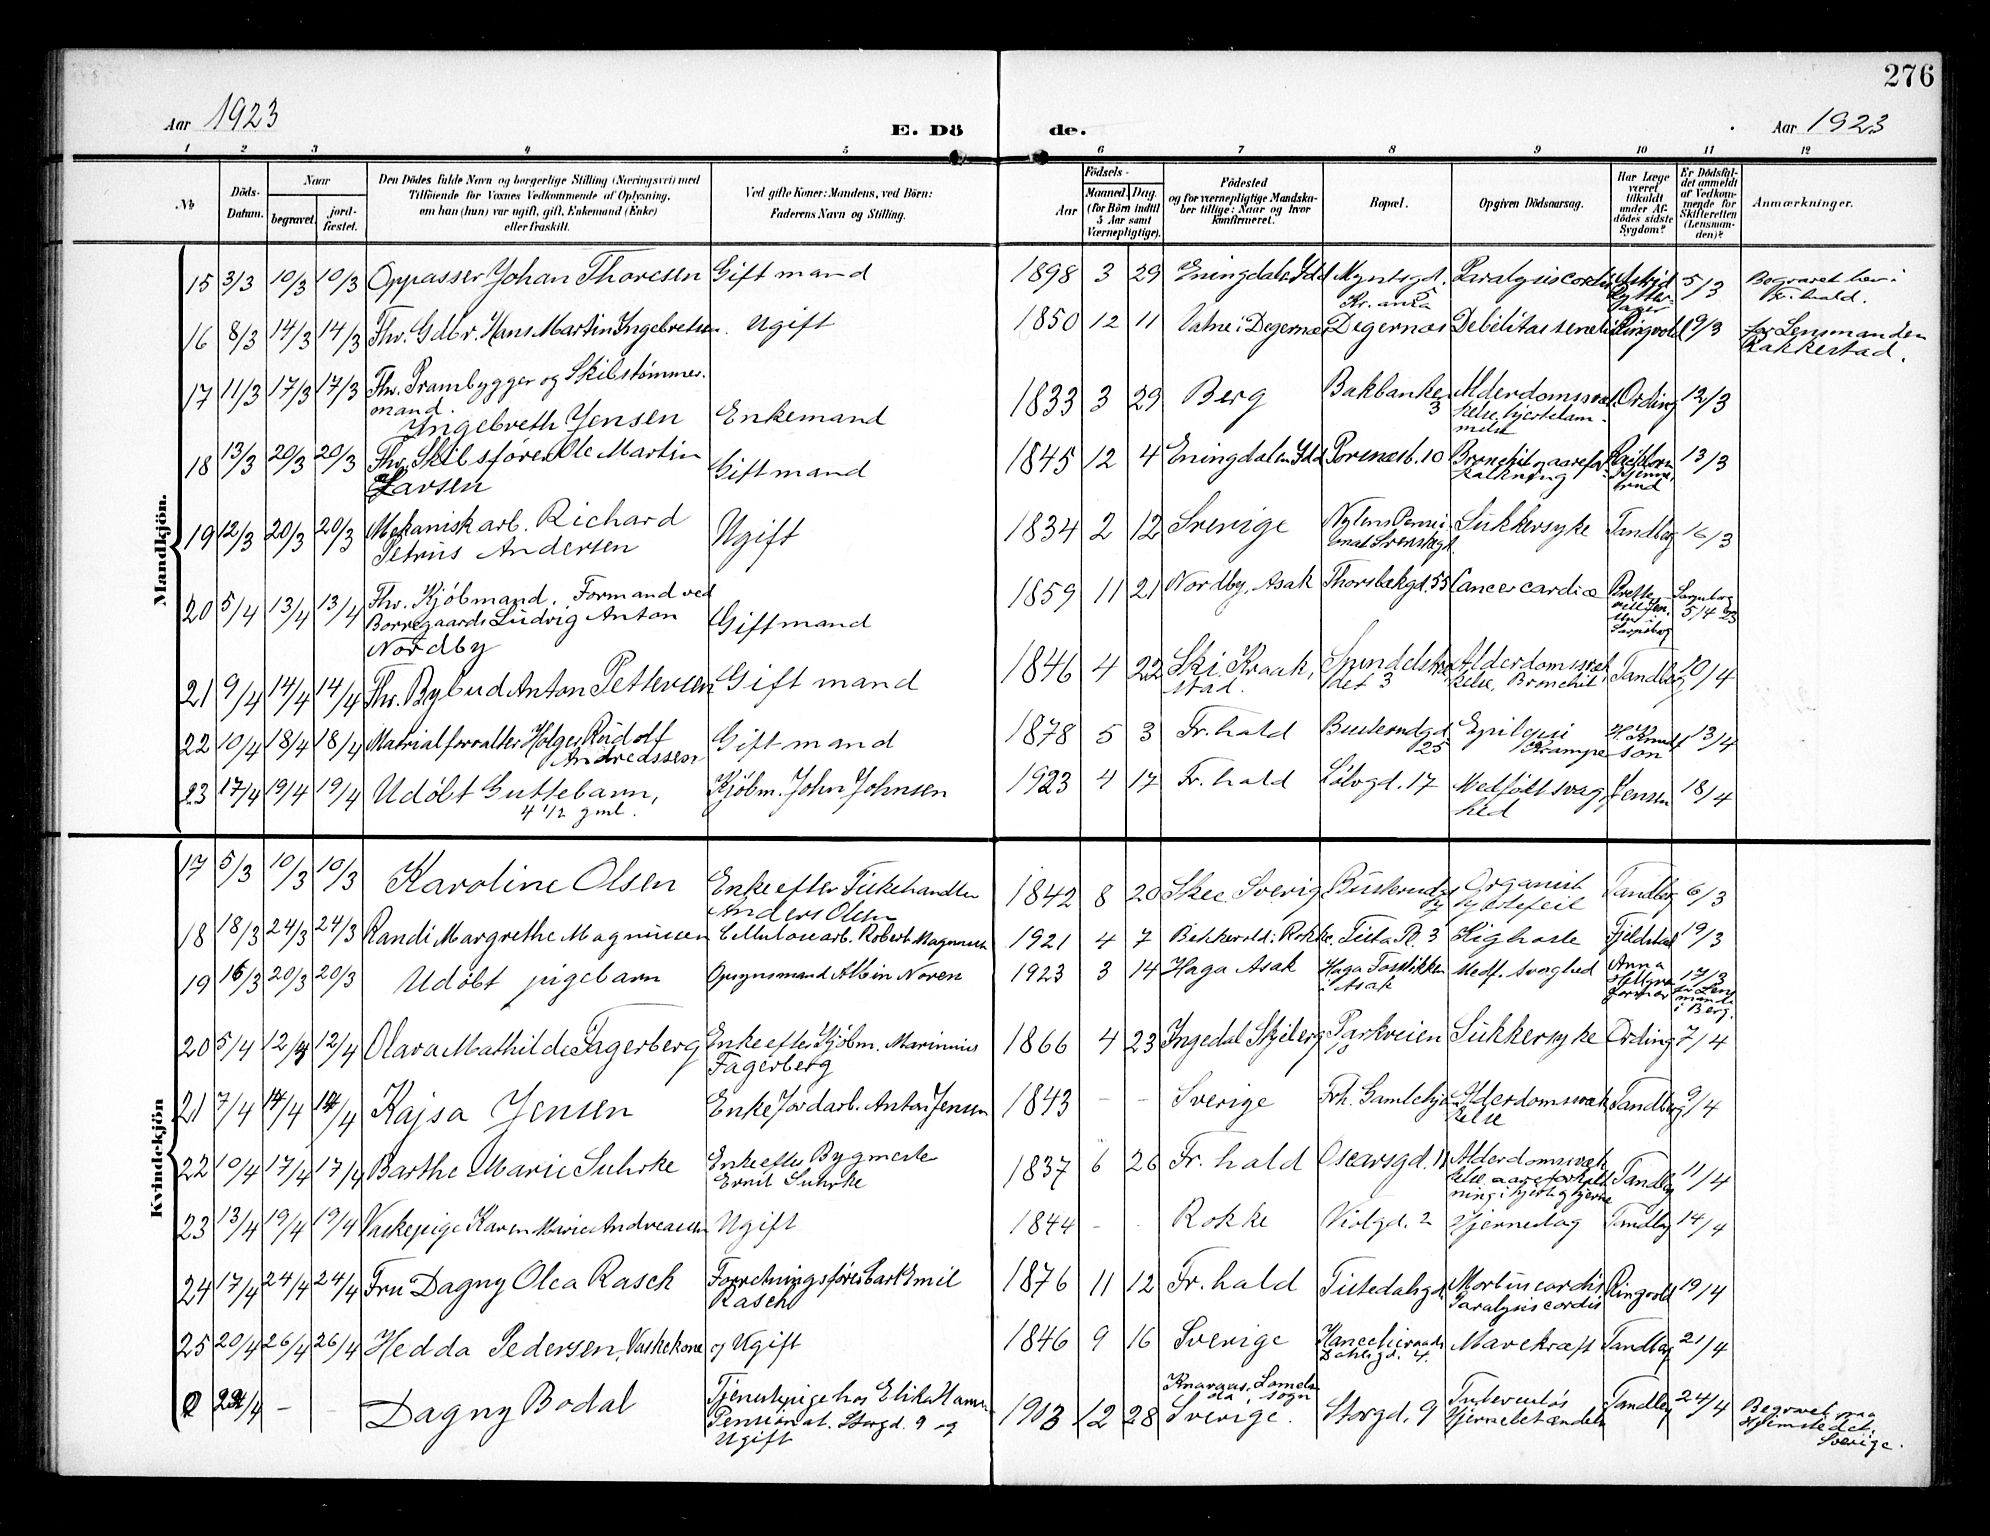 276
Aar 1923
E. Dö
de.
Aar 1923
1 2 3 4 5 6 7 8 9 10 11 12
No
Döds-Datum.
Naar
begravet.
jord-fæstet.
Den Dödes fulde Navn og borgerlige Stilling (Næringsvei) med
Tilföiende for Voxnes Vedkommende af Oplysning,
om han (hun) var ugift, gift, Enkemand (Enke)
eller fraskilt.
Ved gifte Koner: Mandens, ved Börn:
Faderens Navn og Stilling.
Födsels-
Aar
Maaned. Dag.
(for Börn indtil
5 Aar samt
Værnepligtige).
Födested
og for værnepligtige Mandska-
ber tillige: Naar og hvor
konfirmeret.
Bopæl.
Opgiven Dödsaarsag.
Har Læge
været
tilkaldt
under Af-
dödes sidste
Sygdom?
Er Dödsfal-
det anmeldt
af Vedkom-
mende for
Skifteretten
(Lensman-
den)?
Anmærkninger.
Mandkjön.
15 3/3 10/3 10/3 Oppasser Johan Thoresen Gift mand 1898 3 29 Eningdalen Idd Myntsgd. Paralysis cordis 5/3 Begravet her i
Fr.hald.
16 8/3 14/3 14/3 Fhv. Gdbr. Hans Martin Ingebretsen. Ugift 1850 12 11 Degernæs Degernæs Debilitas senilis Ringvold 19/3 for Lensmanden
Rakkestad.
17 11/3 17/3 17/3 Fhv. Prambygger og Skibstømmer-
mand.
Ingebreth Jensen Enkemand 1833 3 29 Berg Bakbanken
3 Alderdomssvæk
kelse, hjertelam-
melse Ording 12/3
18 13/3 20/3 20/3 Fhv. Skibsfører Ole Martin
Larsen Gift mand 1845 12 4 Eningdalen Idd Porsnesb. 10 Bronchit og aarefor
kalkning 13/3
19 12/3 20/3 20/3 Mekanisk arb. Richard
Petrus Andersen Ugift 1834 2 12 Sverige Sukkersyke Tandberg 16/3
20 5/4 13/4 13/4 Fhv. Kjøbmand. Formand ved
Borregaards Ludvig Anton
Nordby Gift mand 1859 11 21 Nordby, Asak Thorsbækgd. 55 Cancer cardiæ Sarpsborg
5/4 23
21 9/4 14/4 14/4 Fhv. Bybud Anton Pettersen Gift mand 1846 4 22 Ski. Kraak,
stad. 3 Alderdomssvæk
kelse, Bronchit Tandberg 10/4
22 10/4 18/4 18/4 Matrialforvalter Holger Rudolf
Andreassen Gift mand 1878 5 3 Fr. hald Buskerudgd.
25 Epilepsi
Krampe H. Knudt
son 13/4
23 17/4 19/4 19/4 Udøbt Guttebarn,
4 1/2 gml. Kjøbm. John Johnsen 1923 4 17 Fr. hald Løkvgd. 17 Medfødt svag,
hed Jensen 18/4
Kvindekjön
17 5/3 10/3 10/3 Karoline Olsen Enke efter Fiskehandler
Anders Olsen 1842 8 20 Skee Sverig Organisk
hjertefeil Tandberg 6/3
18 18/3 24/3 24/3 Randi Margrethe Magnussen Cellulosearb. Robert Magnussen 1921 4 7 Bekkevold i Rokke. Tista Pl. 3 Kighoste Fjeldstad 19/3
19 16/3 20/3 20/3 Udøbt pigebarn Opsynsmand Albin Noren 1923 3 14 Haga Asak Haga
i Asak Medf. svaghed Anna 17/3
for Lens
mand
i Berg.
20 5/4 12/4 12/4 Olava Mathilde Fagerberg Enke efter Kjøbm. Marinius
Fagerberg 1866 4 23 Ingedal Skjeberg Parkveien
10 Sukkersyke Ording 7/4
21 7/4 14/4 14/4 Kajsa Jensen Enke Jordarb. Anton Jensen 1843 - - Sverige Frh. Gamlehjem Alderdomssvæk
kelse Tandberg 9/4
22 10/4 17/4 17/4 Barthe Marie Suhrke Enke efter Bygmeste
Ernst Suhrke 1837 6 26 Fr. hald Oscarsgd. 11 Alderdomssvæk
kelse aareforkalk
ning i hjert og hjerne Tandberg 11/4
23 13/4 19/4 19/4 Vaskepige Karen Marie Andreassen Ugift 1844 - - Rokke Violgd. 2 Hjerneslag Tandberg 14/4
24 17/4 24/4 24/4 Fru Dagny Olea Rasch Forretningsfører Carl Emil
Rasch 1876 11 12 Fr. hald Tistedalsgd. Morbus cordis
Paralysis cordis Ringvold 19/4
25 20/4 26/4 26/4 Hedda Pedersen, Vaskekone og Ugift 1846 9 16 Sverige
Dahlsgd. 4. Mavekræft Tandberg 21/4
0 22/4 - - Dagny Bodal Tjenestepige hos Elika Hansen
Pensionat. Storgd. 9 og
Ugift 1903 12 28 sogn
Sverige. Storgd. 9 Tuberculøs
Hjernebetændelse Tandberg 24/4 Begravet paa
Hjemstedet,
Sverige.